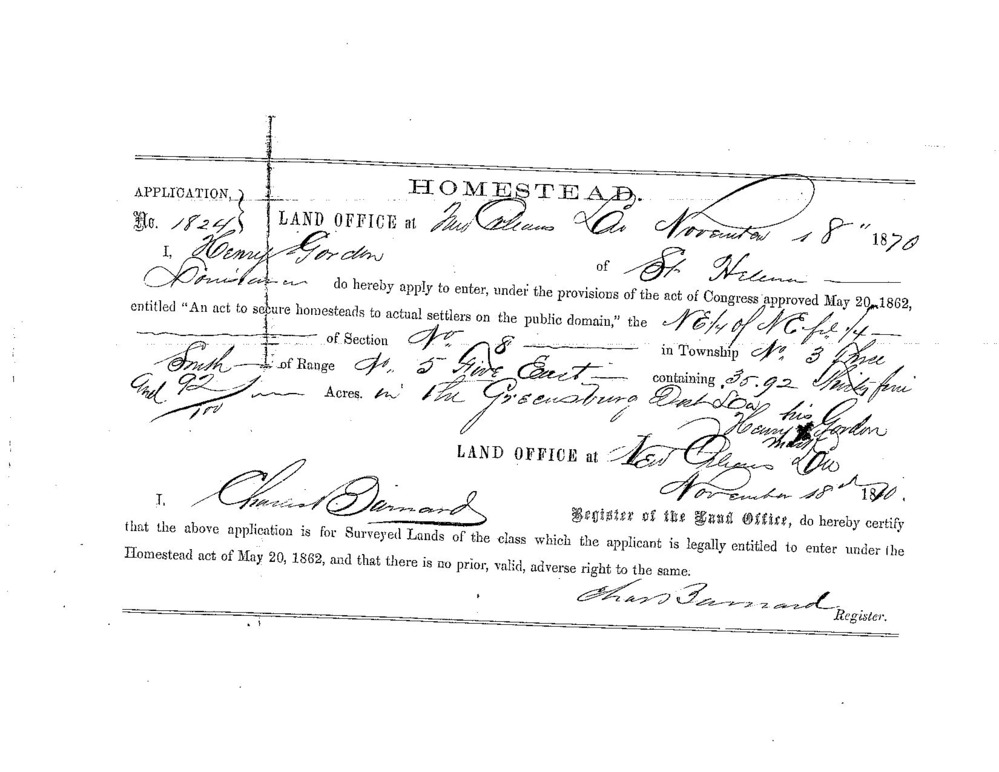 HOMESTEAD.
APPLICATION,
No. 1824
LAND OFFICE at New Orleans La November 18" 1870
I, Henry Gordon of St Helena
Louisiana do hereby apply to enter, under the provisions of the act of Congress approved May 20, 1862,
entitled "An act to secure homesteads to actual settlers on the public domain," the NE 1/4 of NE frl 1/4
of Section No 8 in Township No. 3 Three
South of Range No. 5 Five East containing 35.92 Thirty five
and 92/100 Acres. in the Greensburg Dist La
his
Henry X Gordon
mark
LAND OFFICE at New Orleans La
November 18th 1870.
I, Charles Barnard Register of the Land Office, do hereby certify
that the above application is for Surveyed Lands of the class which the applicant is legally entitled to enter under the
Homestead act of May 20, 1862, and that there is no prior, valid, adverse right to the same.
Chas Barnard
Register.